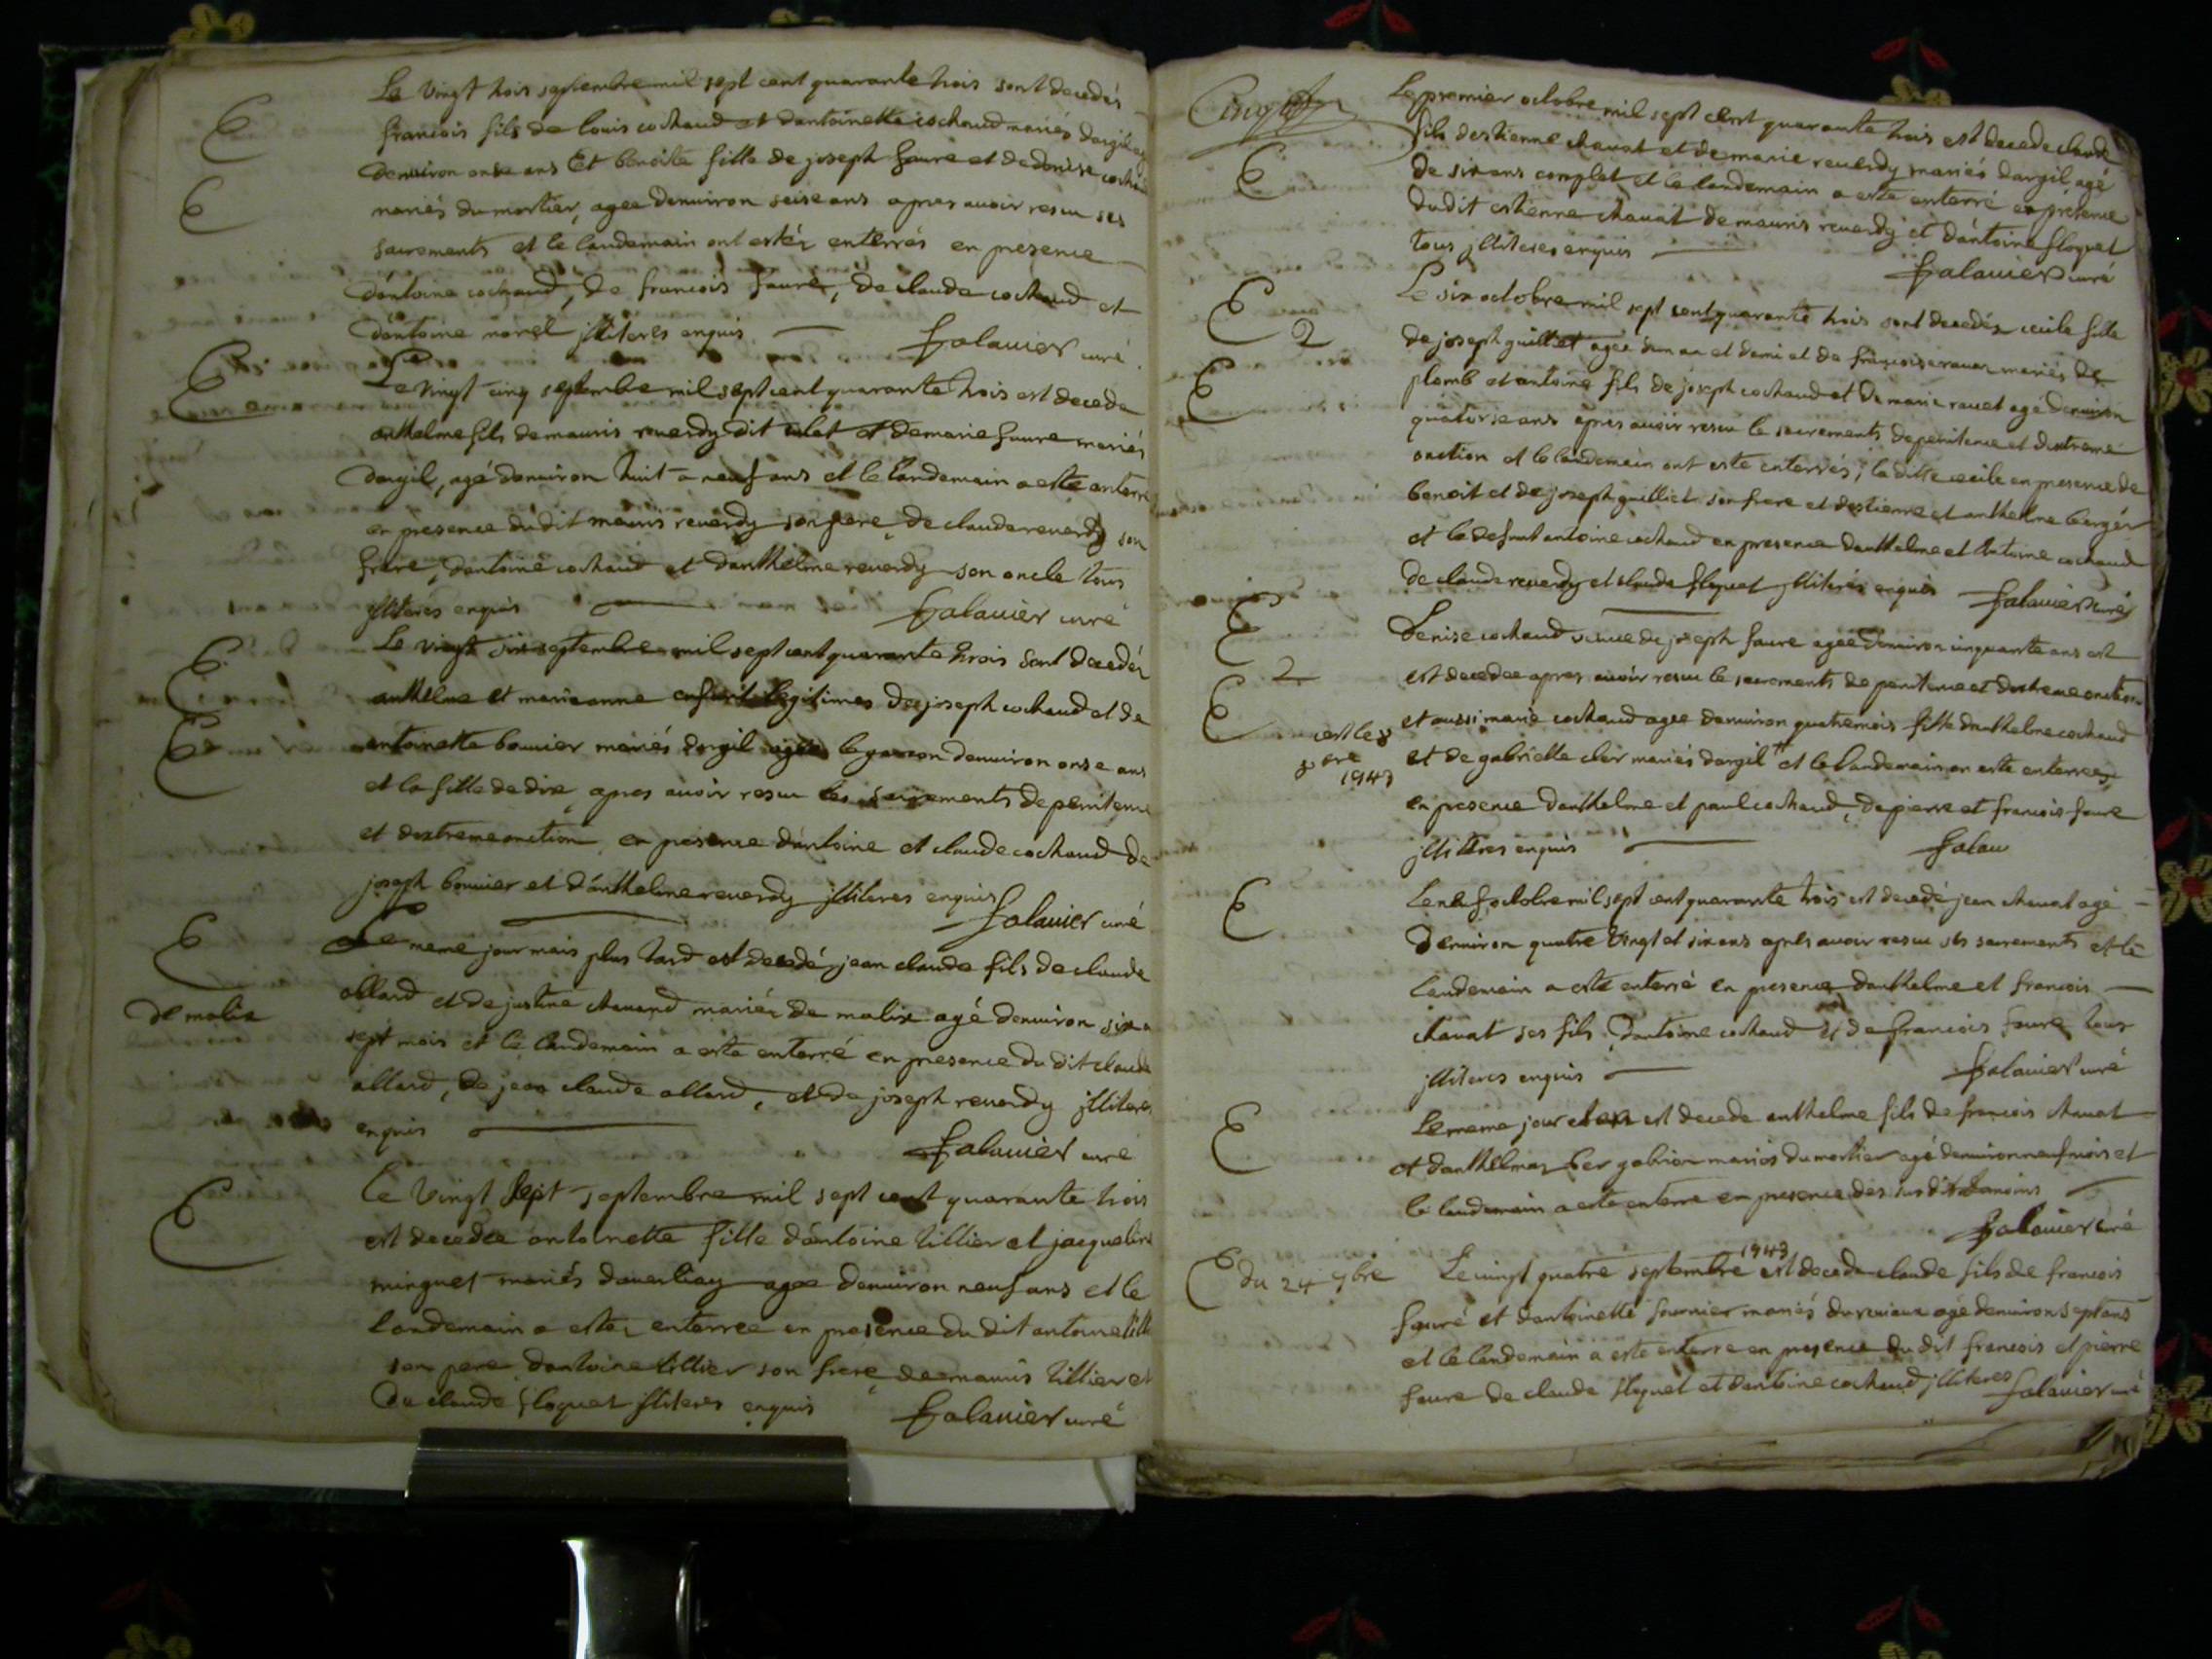 Le vingt trois septembre mil sept cent quarante trois sont decedés
francois fils de louis cochaud et dantoinette cochaud mariés dargil
denuiron onse ans Et benoite fille de joseph faure et de denise
mariés du mortier, agee denuiron seise ans apres auoir resu ses
sacrements et le landemain ont estéz enterrés en presence
dántoine cochaud, de francois faure, de claude cochaud et
dantoine morel jlliteres enquis
falauier curé
Le vingt cinq septembre mil sept cent quarante trois est decede
anthelme fils de mauris reuerdy dit et de marie faure mariés
dargil, agé denuiron huit a neuf ans et le landemain a esté enterré
en presence du dit mauris reuerdy son pere, de claude reuerdy son
frere, dantoine cochaud et danthelme reuerdy son oncle tous
jlliteres enquis
falauier curé
Le vingt six septembre mil sept cent quarante trois sont decedéz
anthelme et marieanne enfants legitimes de joseph cochaud et de
antoinette bouuier mariés dargil agés le garcon denuiron onse ans
et la fille de dix, apres auoir resu les sacrements de penitence
et dextreme onction, en presence dántoine et claude cochaud de
joseph bouuier et dánthelme reuerdy jlliteres enquis
falauier curé
Le meme jour mais plus tard est decedé jean claude fils de claude
allard et de justine chauand mariéz de malix agé denuiron six a
De malix
sept mois et le landemain a esté enterré en presence du dit claude
allard, de jean claude allard, et de joseph reuerdy jlliteres
enquis
falauier curé
Le vingt sept septembre mil sept cent quarante trois
est decedée antoinette fille dántoine tillier et jacqueline
minguet mariés agee denuiron neuf ans et le
landemain a estez enterree en presence du dit antoine
son pere dantoine tillier son frere, de mauris tillier et
de claude floquet jlliteres enquis
falauier curé
Le premier octobre mil sept cent quarante trois est decede claude
fils destienne chauat et de marie reuerdy mariés dargil, agé
de six ans complet et le landemain a esté enterré en presence
du dit estienne chauat de mauris reuerdy et dántoine floquet
tous jlliteres enquis
falauier curé
Le six octobre mil sept cent quarante trois sont decedéz cecile fille
2
de joseph guilliet agee dun an et demi et de francoise mariés de
plomb et antoine fils de joseph cochaud et de marie rauet agé denuiron
quatorse ans apres auoir resu le sacrements de penitence et dextreme
onction et le landemain ont esté enterrés, la ditte cecile en presence de
benoit et de joseph guilliet son frere et destienne et anthelme berger
et le defunt antoine cochaud en presence danthelme et Antoine cochaud
de claude reuerdy et claude floquet jlliterés enquis
falauier curé
Denise cochaud veuue de joseph faure agee denuiron cinquante ans est
2
est decedee apres auoir resu le sacrements de penitence et dextreme onction
et aussi marie cochaud agee denuiron quatre mois fille danthelme cochaud
cest le 8
8bre
1743
et de gabrielle cler mariés dargil et le landemain on esté enterrees
en presence danthelme et paul cochaud, de pierre et francois faure
jlliteres enquis
falau
Le neuf octobre mil sept cent quarante trois est decedé jean chauat agé
denuiron quatre vingt et six ans apres auoir resu ses sacrements et le
landemain a esté enterré en presence danthelme et francois
chauat ses fils, dantoine cochaud et de francois faure tous
jlliteres enquis
falauier curé
Le meme jour est decede anthelme fils de francois chauat
et danthelmaz mariés du mortier agé denuiron neuf mois et
le landemain a esté enterre en presence des sus dit temoins
falauier curé
du 24 7bre
Le vingt quatre septembre 1743 est decede claude fils de francois
fauré et dantoinette fournier mariés agé denuiron sept ans
et le landemain a esté enterre en presence du dit francois et pierre
faure de claude floquet et dantoine cochaud jlliteres
falauier curé